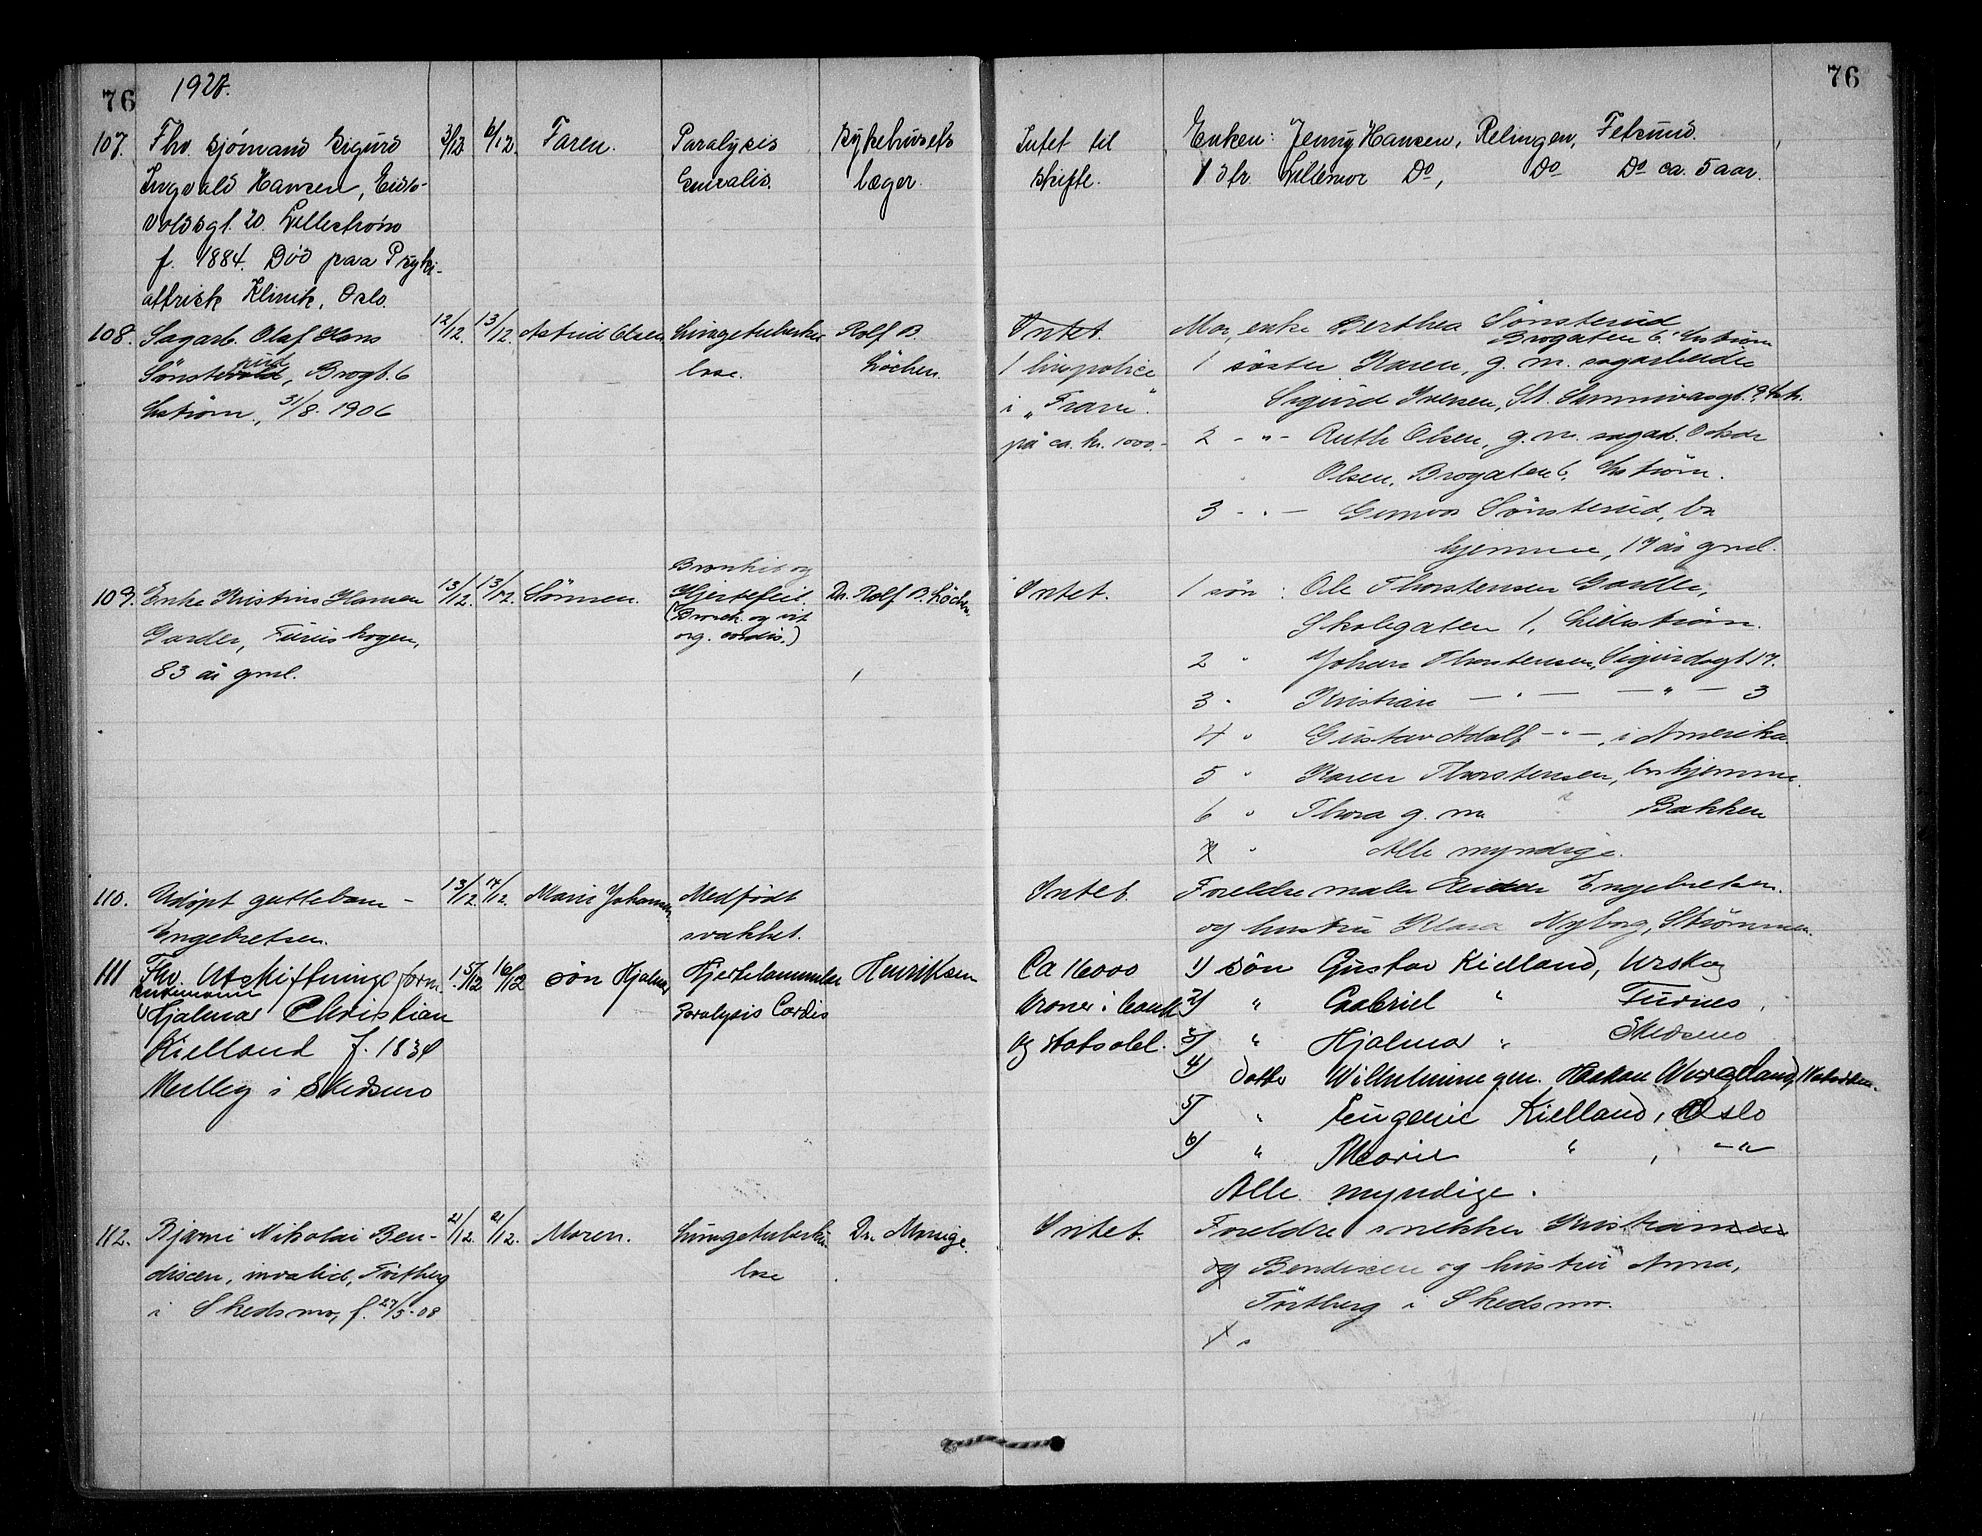 76
1928.
76
107. Fhv. sjømand Sigurd
Ingvald Hansen, Eids-
voldsgt. 20. Lillestrøm
f. 1884. Død paa Psyki-
attrisk Klinik, Oslo.
3/12 6/12 Faren.
Paralysis
Gneralis.
Sykehusets
læger.
Intet til
skifte.
Enken: Jenny Hansen, Relingen, Fetsund.
Lillemor Do, Do Do ca. 5 aar.
108. Sagarb. Olaf Hans
Sønsterud, Brogt. 6
Lstrøm, 31/8. 1906
12/12. 13/12. Astrid Olsen
Lungetuberku
lose.
Rolf B.
Löchen.
Intet.
1 livspolice
i "Fram".
på ca. kr. 1000.-
Mor, enke Berthea Sønsterud
Brogaten 6. Lstrøm
1 søster Karen, g. m. sagarbeider
Sigurd Iversen, St. Sunnivasgt. 9
2 - " - Ruth Olsen, g. m. sagarb. Oskar
Olsen, Brogaten 6, Lstrøm.
3 - " - Gunvor Sønsterud, bor
hjemme, 17 år gml.
109. Enke Kristine Hansen
Garder, Furuskogen,
83 år gml.
13/12. 13/12. Sønnen.
Bronkit og
Hjertefeil.
(Bronch. og vit
org. cordis.)
Dr. Rolf B. Löchen
Intet.
1 søn : Ole Thorstensen Garder,
Skolegaten 1, Lillestrøm.
2 " Johan Thorstensen, Sigurdsgt. 17.
3 " Kristian — " — — " — 3
4 " Gustav Adolf — " —, i Amerika.
5 " Karen Thorstensen, bor hjemme.
6 " Thora g. m. Bakken
Alle myndige.
110. Udöpt guttebarn -
Engebretsen.
13/12. 14/12. Marie Johansen.
Medfødt
svakhet.
Intet.
Foreldre maler Reidar Engebretsen.
og hustru Klara Nyborg, Strømmen.
111 Fhv. Utskiftningsform.
Hjalmar Christian
Kielland f. 1834
Melleg i Skedsmo
15/12 16/12 søn Hjalmar
Hjertelammelse
Paralysis Cordis
Henriksen
Ca 16000
kroner i bank
og statsobl.
1) søn Gustav Kielland, Urskog
2) " Gabriel " Furnes,
3) " Hjalmar " Skedsmo
4) datter Wilhelmine gm. Haakon Wergeland,
5) " Eugenie Kielland, Oslo
6) " Marie " , — "
Alle myndige.
112. Bjarne Nikolai Ben-
disen, invalid, Tortberg
i Skedsmo, f. 27/5-08
21/12. 21/12. Moren.
Lungetuberku
lose
Dr. Munige.
Intet.
Foreldre snekker Kristian
og Bendixen og hustru Anna,
Tortberg i Skedsmo.